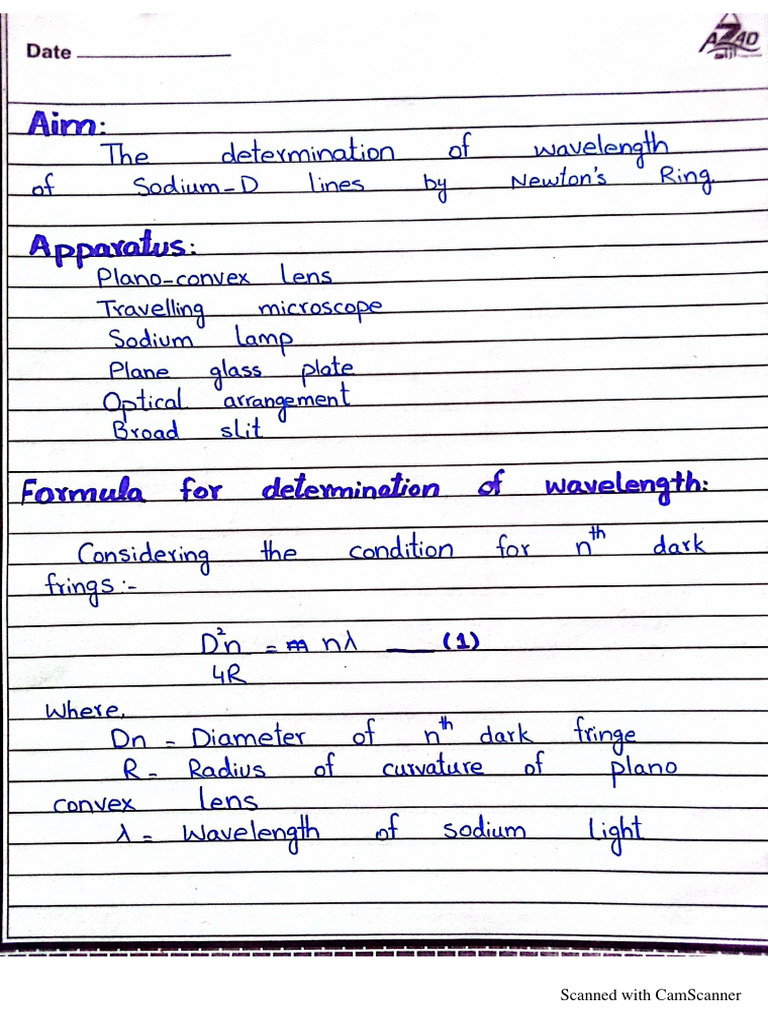 Date
AZAD
Aim:
The determination of wavelength
of Sodium-D lines by Newton's Ring.
Apparatus:
Plano-convex lens
Travelling microscope
Sodium lamp
Plane glass plate
Optical arrangement
Broad slit
Formula for determination of wavelength:
Considering the condition for nth dark
frings:-
D²n = nλ (1)
4R
Where,
Dn = Diameter of nth dark fringe
R - Radius of curvature of plano
convex lens
λ = Wavelength of sodium light
Scanned with CamScanner